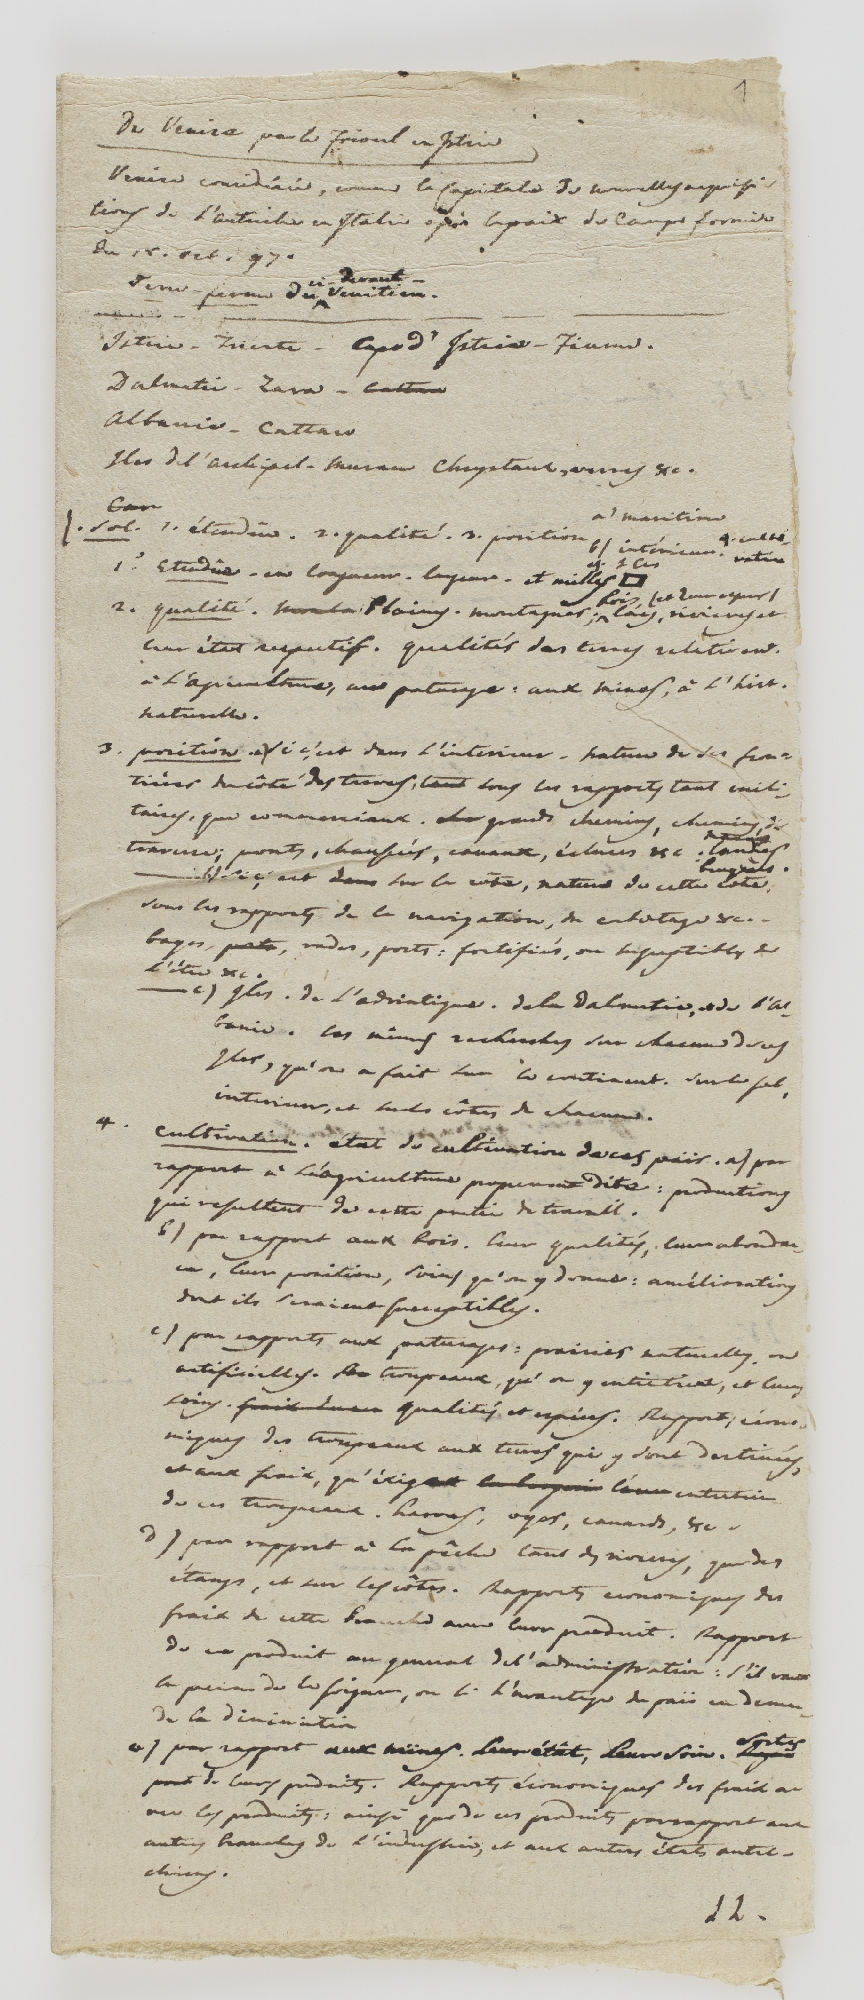 1
De Venise par le Frioul en Istrie
Venise considérée, comme la Capitale des nouvelles acquisi-
tions de l'autriche en Italie après la paix de Campo formio
du 18. oct. 97.
Terre-ferme du ci-devant Venitien.
Istrie - Trieste - Capo d'Istria - Fiume.
Dalmatie - Zara - Cattaro
Albanie - Cattaro
Iles de l'archipel - Murano Chrystaux, verres &c.
1. Sol. 1. étendüe. 2. qualité. 3. position a) maritime
b) intérieure. 4. culti-
vation
c) d'Iles
1° Etendüe - en longueur - largeur - et milles □
2. qualité. Plaines - montagnes, bois (et leur espece) lacs, rivieres et
leur état respectif. qualités des terres relativem.
à l'agriculture, au paturage: aux mines, à l'hist.
naturelle.
3. position. a) Si c'est dans l'interieur - nature de ses fron-
tières du côté des terres, tant sous les rapports tant mili-
taires, que commerciaux. grands chemins, chemins de
traverse; ponts, chaussées, canaux, écluses &c. marais landes
bruyères.
b) Si c'est dans sur la côte, nature de cette côte,
sous les rapports de la navigation, du cabotage &c. -
bayes, ports, rades, ports: fortifiés, ou susceptibles de
l'être &c.
c) Iles. de l'adriatique. de la Dalmatie, de l'Al-
banie. les mêmes recherches sur chacune de ces
Iles, qu'on a fait sur le continent. Sur le sol,
interieur, et sur les côtes de chacune.
4. cultivation. état de cultivation de ces païs. a) par
rapport à l'agriculture proprement dite: productions
qui resultent de cette partie de travail.
b) par rapport aux bois. leur qualités, leur abondan-
ce, leur position, soins qu'on y donne: améliorations
dont ils seraient susceptibles.
c) par rapports aux paturages: prairies naturelles, ou
artificielles. troupeaux, qu'on y entretient, et leurs
soins. qualités et espèces. Rapports écono-
miques des troupeaux aux terres qui y sont destinées,
et aux frais, qu'exige l'entretien
de ces troupeaux. harras, oyes, canards, &c.
d) par rapport à la pêche tant des rivieres, que des
étangs, et sur les côtes. Rapports économiques des
frais de cette branche avec leur produit. Rapport
de ce produit au general de l'administration: s'il vaut
la peine de le soigner, ou si l'avantage du païs en deman-
de la diminution
e) par rapport aux mines. Leur état, leur soin. sortes
de leurs produits. Rapports économiques des frais a-
vec les produits: ainsi que de ces produits par rapport aux
autres branches de l'industrie, et aux autres états autri-
chiens.